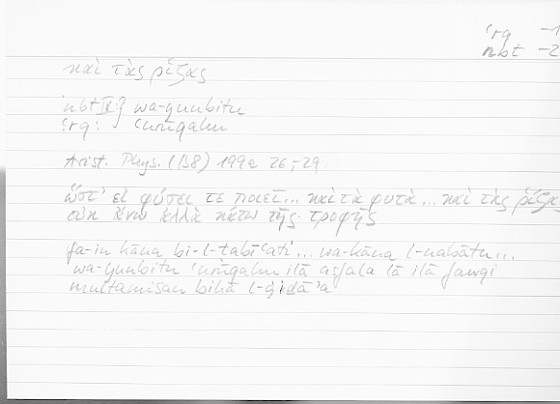 ʿrq – 1
nbt – 2
καὶ τὰς ῥίζας
nbt IV: } wa-yunbitu
ʿrq: ʿurūqahu
Arist. Phys. (B8) 199a 26–29
ὥστ' εἰ φύσει τε ποιεῖ... καὶ τὰ φυτὰ... καὶ τὰς ῥίζας
οὐκ ἄνω ἀλλὰ κάτω τῆς τροφῆς
fa-in kāna bi-l-ṭabīʿati... wa-kāna l-nabātu...
wa-yunbitu ʿurūqahu ilā asfala lā ilā fawqi
multamisan bihā l-ġidāʾa